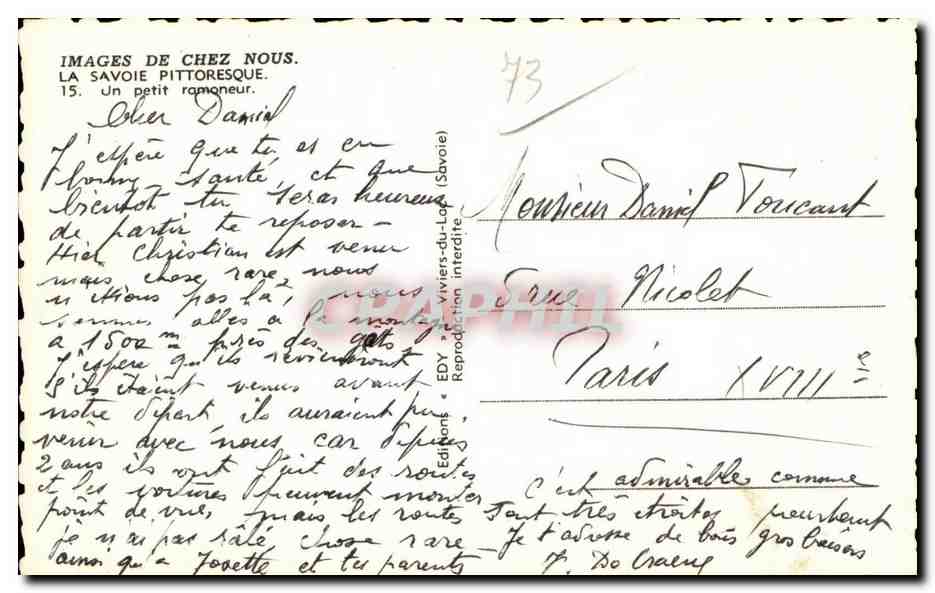 IMAGES DE CHEZ NOUS.
LA SAVOIE PITTORESQUE.
15. Un petit ramoneur.
73
Cher Daniel
J'espère que tu es en
bonne santé, et que
bientôt tu seras heureux
de partir te reposer -
Hier Christian est venu
mais chose rare, nous
n'étions pas là, nous
sommes allés à la montagne
à 1500 m près des
J'espère qu'ils reviendront
S'ils étaient venus avant
notre départ ils auraient pu
venir avec nous, car depuis
2 ans ils ont fait des routes
et les voitures peuvent monter
point de vue, mais les routes
je n'ai pas râlé chose rare -
ainsi qu'a Josette et tes parents
Editions « EDY » Viviers-du-Lac (Savoie)
Reproduction interdite
CPAPHIL
Monsieur Daniel Toucant
5 rue Nicolet
Paris XVIII e
C'est admirable comme
sont très étroites pourtant
Je t'adresse de bons gros baisers